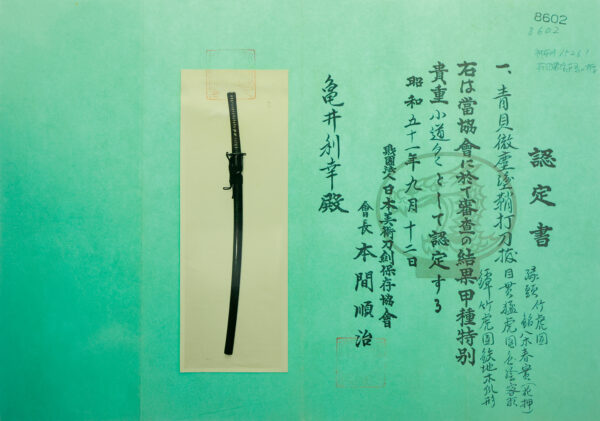 8602
8602
認定書
一、青貝微塵塗鞘打刀拵
縁頭 竹虎図
銘 八木春貴(花押)
目貫 猛虎図
鐔 竹虎図 鉄地木瓜形
右は當協會に於て審査の結果甲種特別
貴重小道具として認定する
昭和五十一年九月十二日
財團法人日本美術刀剣保存協會
會長 本間順治
亀井利幸殿